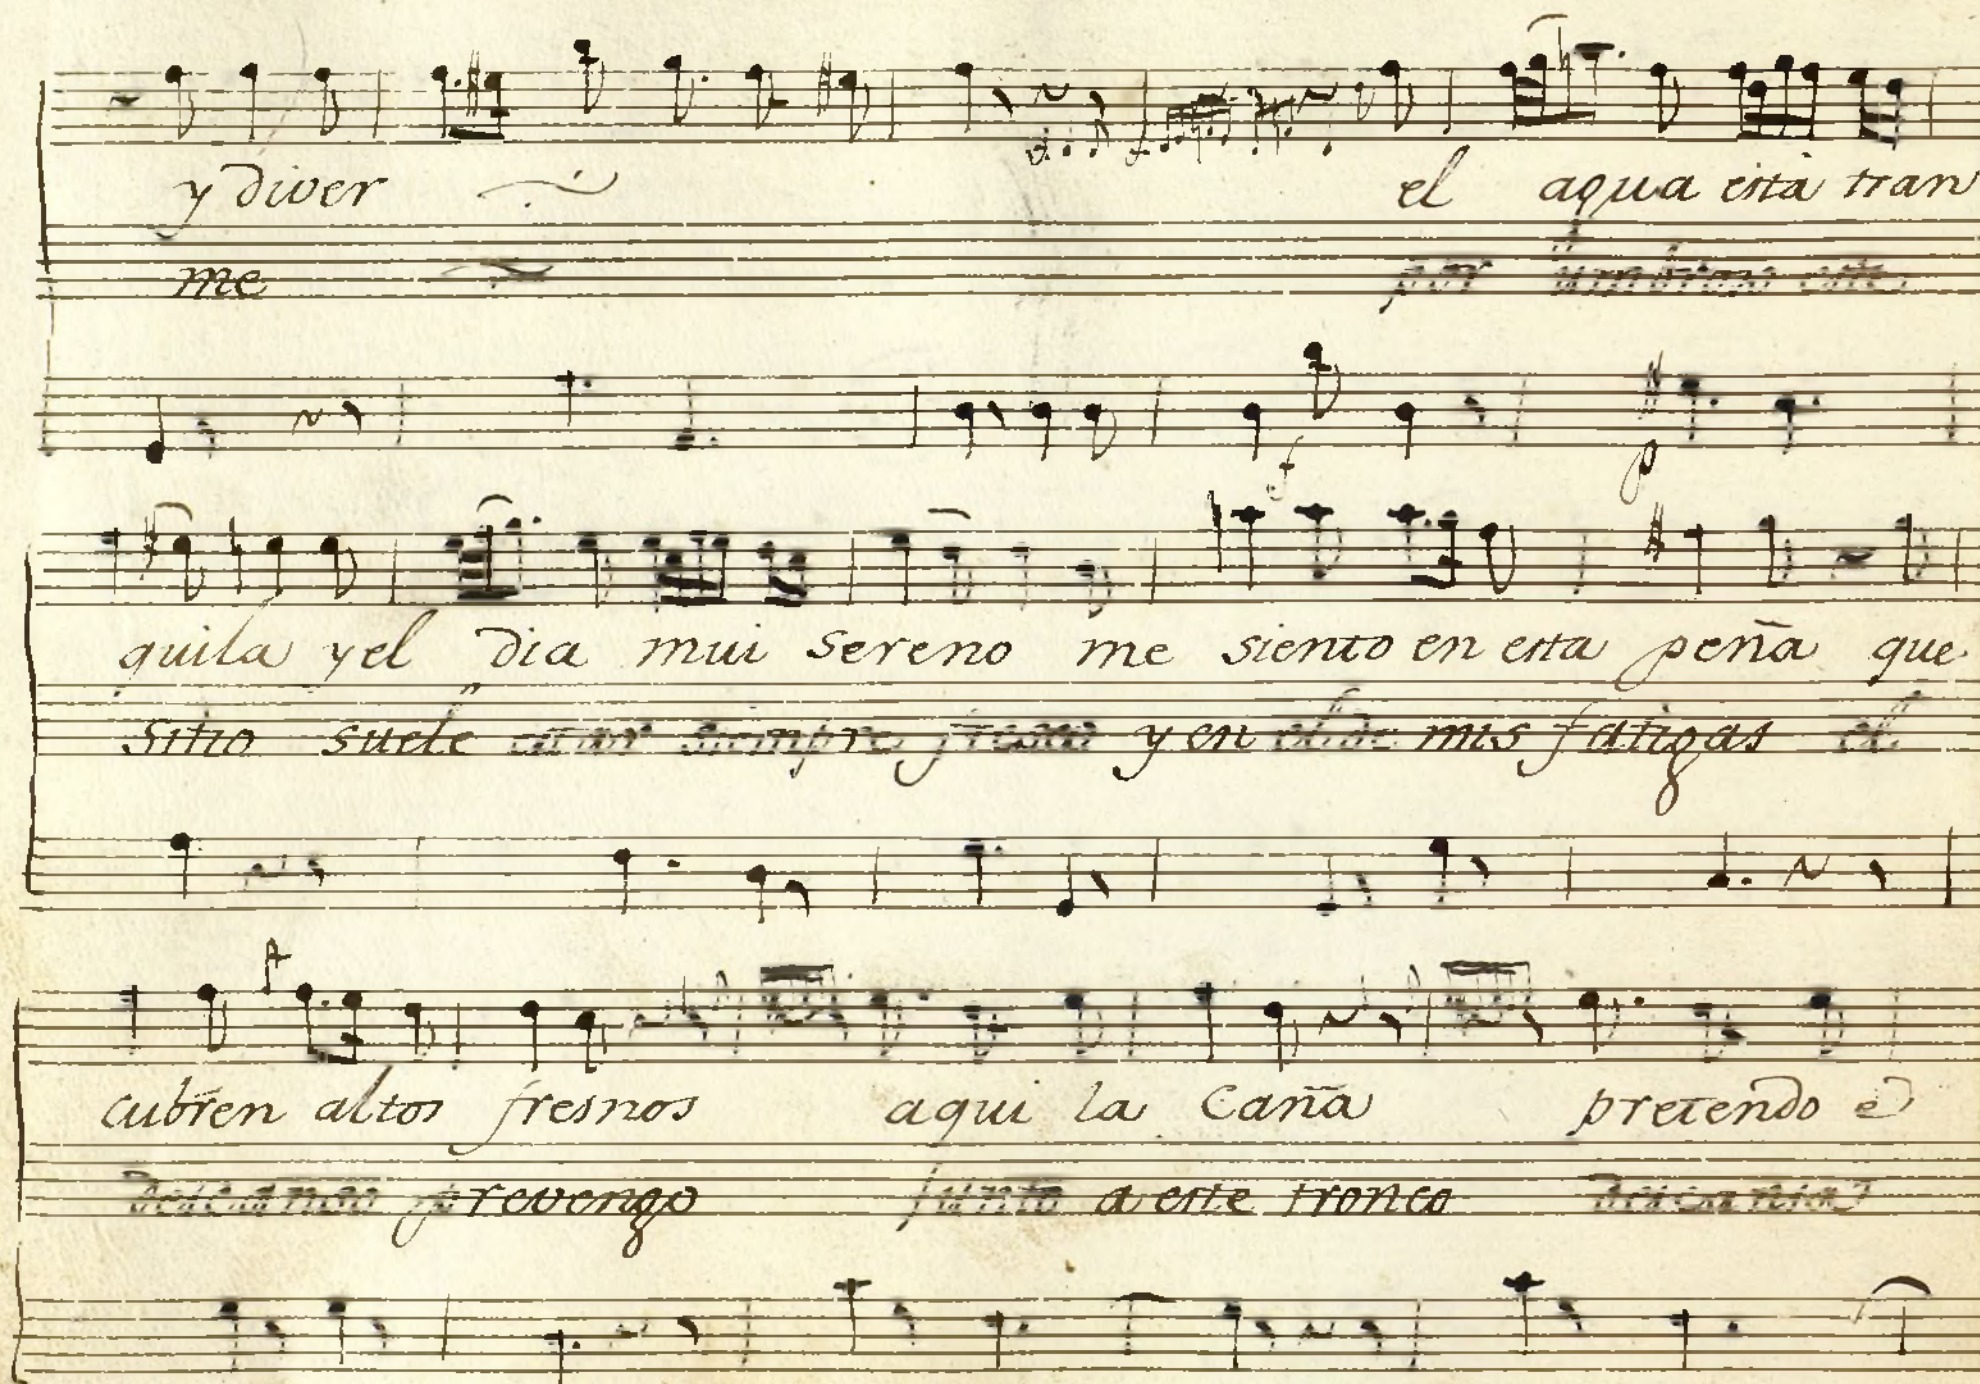 y diver
el agua está tran
me
por umbroso este
f
p
quila y el dia mui sereno me siento en esta peña que
sitio suele estar siempre fresco y en el de mis fatigas el
cubren altos fresnos aqui la Caña pretendo
descanso prevengo junto a este tronco